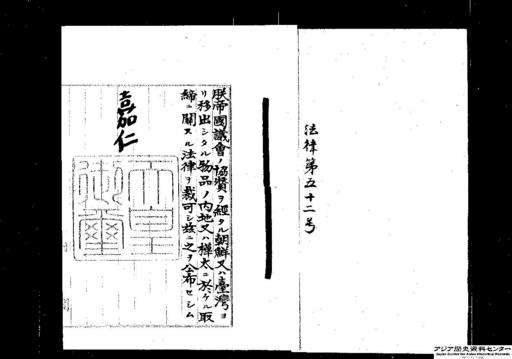 法律第五十二号
朕帝國議會ノ協賛ヲ經タル朝鮮又ハ臺灣ヨ
リ移出シタル物品ノ内地又ハ樺太ニ於ケル取
締ニ關スル法律ヲ裁可シ茲ニ之ヲ公布セシム
嘉仁
天皇
御璽
アジア歴史資料センター
Japan Center for Asian Historical Records